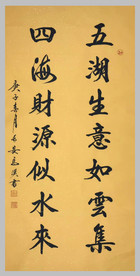 五湖生意如雲集
四海財源似水來
庚子春月